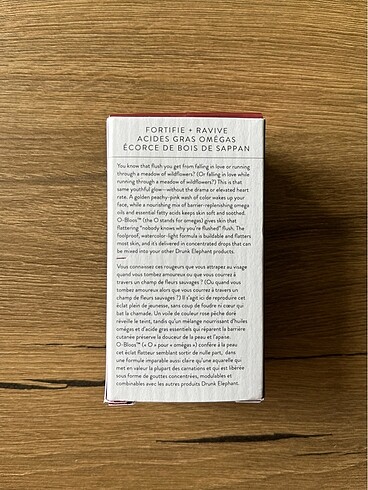 FORTIFIE + RAVIVE
ACIDES GRAS OMÉGAS
ÉCORCE DE BOIS DE SAPPAN
You know that flush you get from falling in love or running
through a meadow of wildflowers? (Or falling in love while
running through a meadow of wildflowers?) This is that
same youthful glow—without the drama or elevated heart
rate. A golden peachy-pink wash of color wakes up your
face, while a nourishing mix of barrier-replenishing omega
oils and essential fatty acids keeps skin soft and soothed.
O-Bloos™ (the O stands for omegas) gives skin that
flattering "nobody knows why you're flushed" flush. The
foolproof, watercolor-light formula is buildable and flatters
most skin, and it's delivered in concentrated drops that can
be mixed into your other Drunk Elephant products.
Vous connaissez ces rougeurs que vous attrapez au visage
quand vous tombez amoureux ou que vous courrez à
travers un champ de fleurs sauvages ? (Ou quand vous
tombez amoureux alors que vous courrez à travers un
champ de fleurs sauvages ?) Il s'agit ici de reproduire cet
éclat plein de jeunesse, sans coup de foudre ni cœur qui
bat la chamade. Un voile de couleur rose pêche doré
réveille le teint, tandis qu'un mélange nourrissant d'huiles
omégas et d'acide gras essentiels qui réparent la barrière
cutanée préserve la douceur de la peau et l'apaise.
O-Bloos™ (« O » pour « omégas ») confère à la peau
cet éclat flatteur semblant sortir de nulle part, dans
une formule imparable aussi claire qu'une aquarelle qui
met en valeur la plupart des carnations et qui est libérée
sous forme de gouttes concentrées, modulables et
combinables avec les autres produits Drunk Elephant.